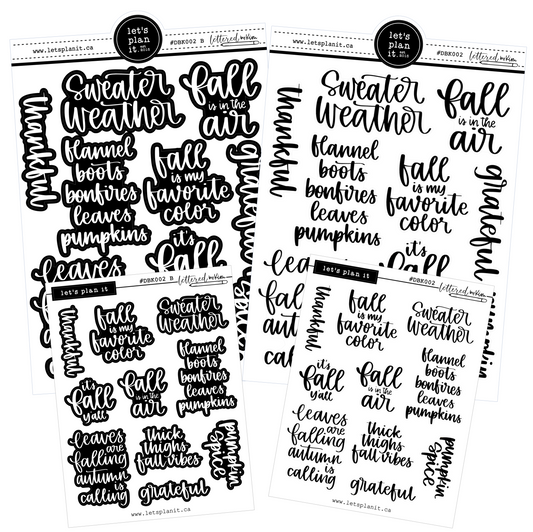 let's
plan
it.
EST. 2013
www.letsplanit.ca
#DBK002 B
lettered
Sweater
weather
fall
is in the
air
thankful
flannel
boots
bonfires
leaves
pumpkins
fall
is my
favorite
color
grateful
it's
fall
leaves
let's
plan
it.
EST. 2013
www.letsplanit.ca
#DBK002
lettered
Sweater
weather
fall
is in the
air
thankful
flannel
boots
bonfires
leaves
pumpkins
fall
is my
favorite
color
grateful
it's
fall
let's plan it
#DBK002 B
lettered
thankful
fall
is my
favorite
color
Sweater
weather
flannel
boots
bonfires
leaves
pumpkins
it's
fall
y'all
fall
is in the
air
leaves
are
falling
autumn
is
calling
thick
thighs
fall vibes
pumpkin
spice
grateful
www.letsplanit.ca
let's plan it
#DBK002
lettered
thankful
fall
is my
favorite
color
Sweater
weather
flannel
boots
bonfires
leaves
pumpkins
it's
fall
y'all
fall
is in the
air
leaves
are
falling
autumn
is
calling
thick
thighs
fall vibes
pumpkin
spice
grateful
www.letsplanit.ca